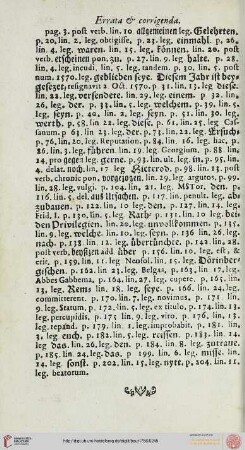 Errata & corrigenda.
pag. 3. post verb. lin. 10 allgemeinen leg. Gelehrten.
p. 20, lin. 2. leg. obtigisse, p. 23. leg. einmahl. p. 26,
lin. 4. leg. waren. lin. 15. leg. können. lin. 20. post
verb. erscheinen pon. zu. p. 27. lin. 9. leg. halte. p. 28.
lin. 4. leg. ineudi. lin. 5. leg. tandem. p. 30, lin. 5. post
num. 1570. leg. geblieben seye. Diesem Jahr ist bey-
gesezet, resignavit 2 Oct. 1570. p. 31. lin. 13. leg. diese.
lin. 22. leg. versendete. lin. 29. leg. einem. p. 32. lin.
26, leg. der. p. 33. lin. 5. leg. welchem. p. 39. lin. 5.
leg. seyn. p. 40. lin. 2. leg. seyn. p. 51. lin. 30. leg.
werth. p. 58. lin 22. leg. diese. p. 61. lin. 25. leg. Cas-
sanum. p. 63 lin. 23. leg. der. p. 73. lin. 22. leg. Ersuch-
p. 76, lin. 20, leg. Reputation. p. 84, lin. 16. leg. hac. p.
86, lin. 3. leg. führen. lin. 19. leg. Georgium. p. 88. lin.
24, pro gegen leg. gerne. p. 93. lin. ult. leg. in. p. 95, lin.
4. delat. noch, lin. 17 leg. p. 98. lin. 13. post
verb. chronic pon. lin. 29. leg. argutor. p. 99.
lin. 28, leg. vulgi. p. 104, lin. 21. leg. MSTor. den. p.
116. lin. 5. del. aus Ursachen. p. 117. lin. penult. leg. ab-
zubauen. p. 122. leg. den. p. 127. lin. 14. leg.
Frid. I. p. 130. lin. 5. leg. Rath. p. 131. lin. 10 leg. bei-
den Privilegien. lin. 20. leg. unvollkommen. p. 135.
lin. 9. leg. welche. lin. 10. leg. seyn. p. 136 lin. 26. leg.
nach. p. 138. lin. 12. leg. übertünchte. p. 142. lin. 28.
post verb. besitzen add. über p. 156. lin. 10. leg. est, &
erit. p. 159. lin. 11. leg. Neofol. lin. 15. leg. Dörnber-
gischen. p. 162. lin 23. leg. Belgas, p. 163. lin 17. leg.
Abbes Gabbema, p. 164, lin. 27, leg. cupere, p. 165. lin.
23. leg. Rems lin. 18. leg. seye. p. 166. lin. 24. leg.
committerent. p. 170. lin. 7. leg. novimus. p. 171 lin.
9. leg. Statum, p. 172, lin. 5. leg. ex titulo, p. 174. lin. 13.
leg. percupidis, p. 175, lin. 9. leg. viro, p. 176, lin. 13.
leg. repand. p. 179. lin. 1. leg. improbabit. p. 181. lin.
3. leg. euch. p. 182. lin. 5. leg. reissen. p. 183. lin. 14.
leg das. lin. 26. leg. den. p. 184. lin. 8. leg. zutratte.
p. 185. lin. 24. leg. das. p. 199. lin. 6. leg. misse. lin.
14. leg. sonst. p. 202. lin. 15. leg. nyte. p. 204. lin. 11.
leg. beatorum.